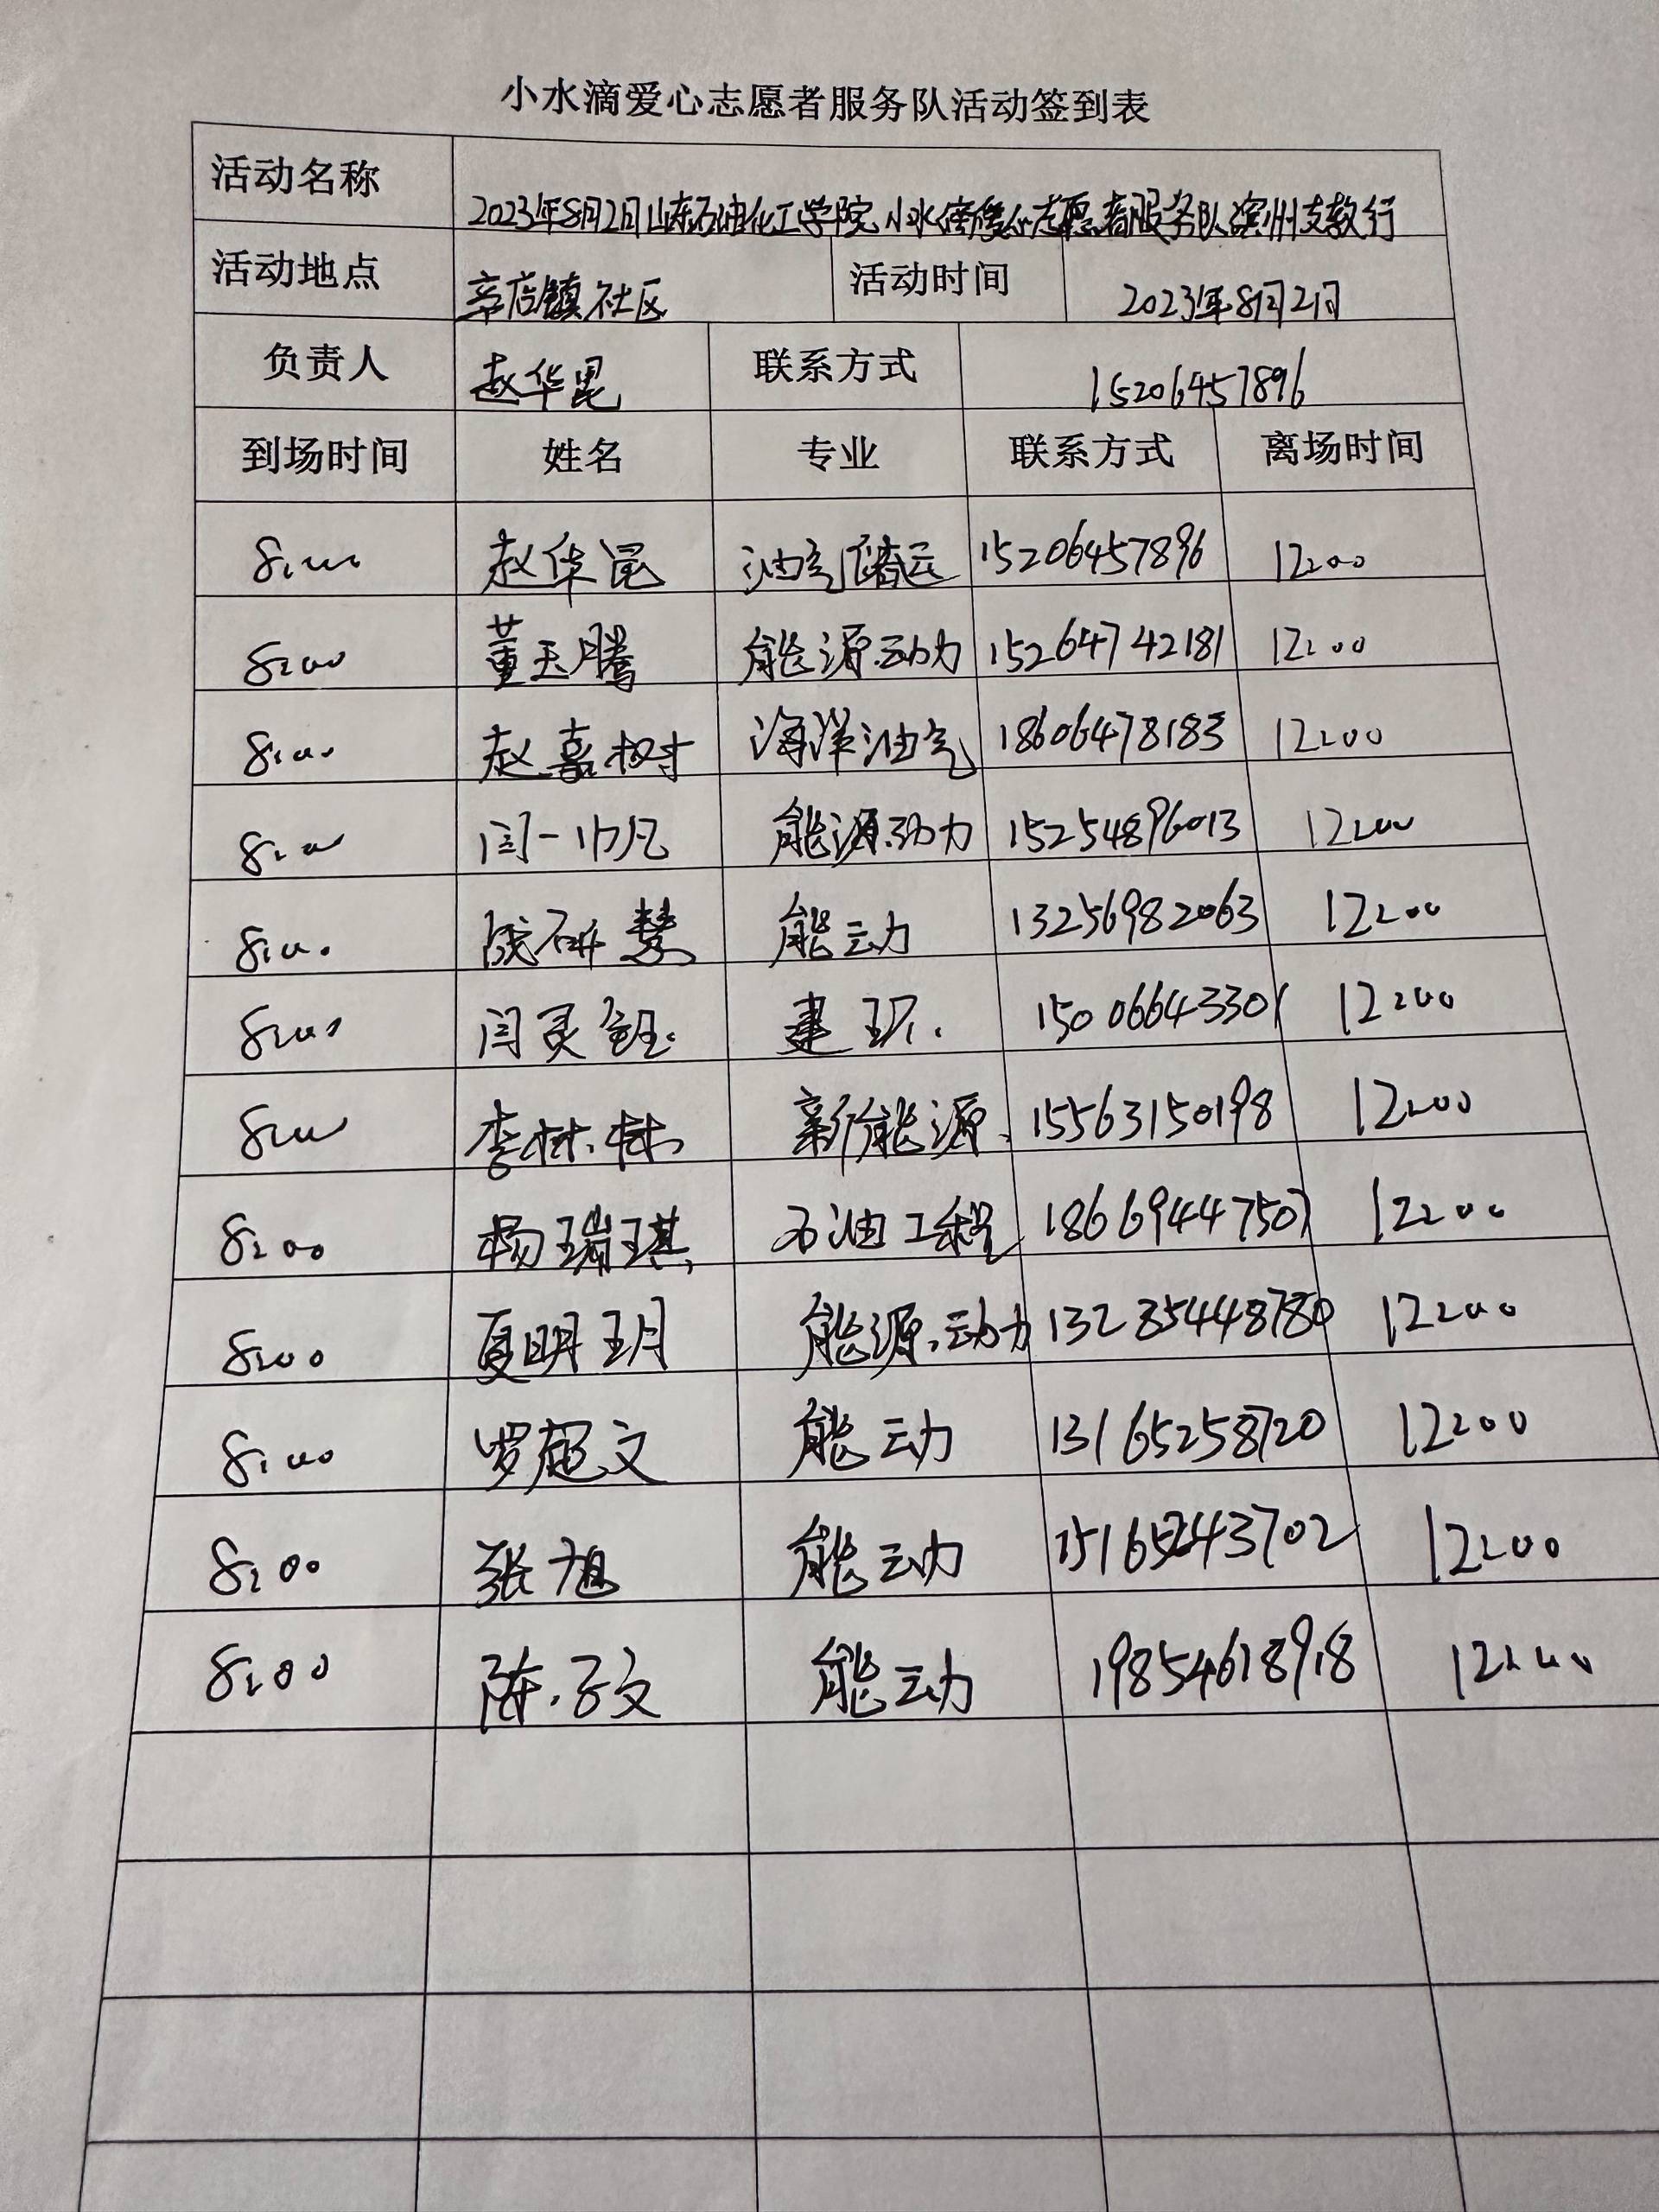 小水滴爱心志愿者服务队活动签到表
活动名称 2023年8月2日山东石油化工学院小水滴爱心志愿者服务队滨州支教行
活动地点 辛店镇社区 活动时间 2023年8月2日
负责人 赵华昆 联系方式 15206457896
到场时间 姓名 专业 联系方式 离场时间
8:00 赵华昆 油气储运 15206457896 12:00
8:00 董玉腾 能源动力 15264742181 12:00
8:00 赵嘉树 海洋油气 18606478183 12:00
8:00 闫一帆 能源动力 15254896013 12:00
8:00 战研慧 能动 13256982063 12:00
8:00 闫灵钰 建环 15006643301 12:00
8:00 李林林 新能源 15563150198 12:00
8:00 杨瑞琪 石油工程 18669447507 12:00
8:00 夏明玥 能源动力 12:00
8:00 罗超文 能动 13165258720 12:00
8:00 张旭 能动 12:00
8:00 陈子文 能动 19854618918 12:00